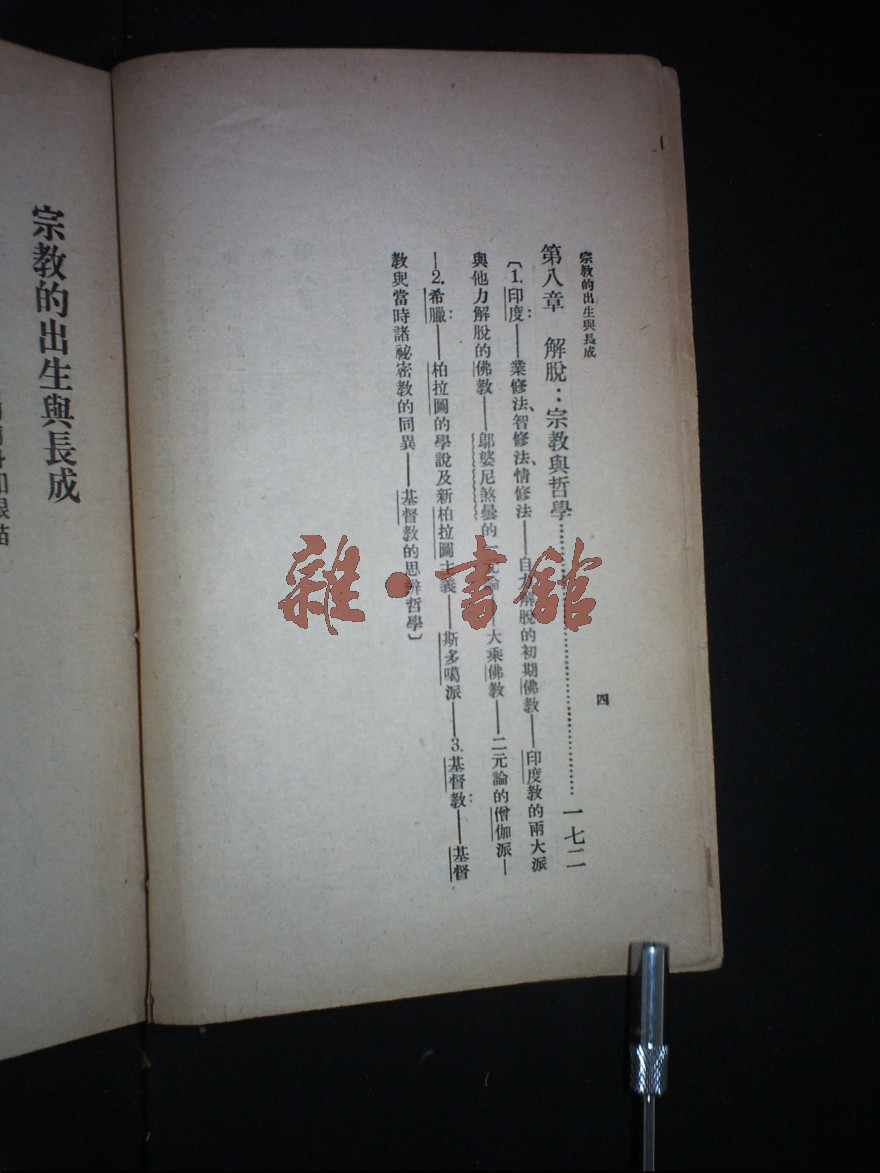 宗教的出生與長成
第八章　解脫：宗教與哲學……………………一七二
〔1.印度：——業修法、智修法、情修法——自力解脫的初期佛教——印度教的兩大派
與他力解脫的佛教——鄔婆尼煞曇的一元論——大乘佛教——二元論的僧伽派—
—2.希臘：——柏拉圖的學說及新柏拉圖主義——斯多噶派——3.基督教：——基督
教與當時諸祕密教的同異——基督教的思辨哲學〕
四
宗教的出生與長成
雜·書館